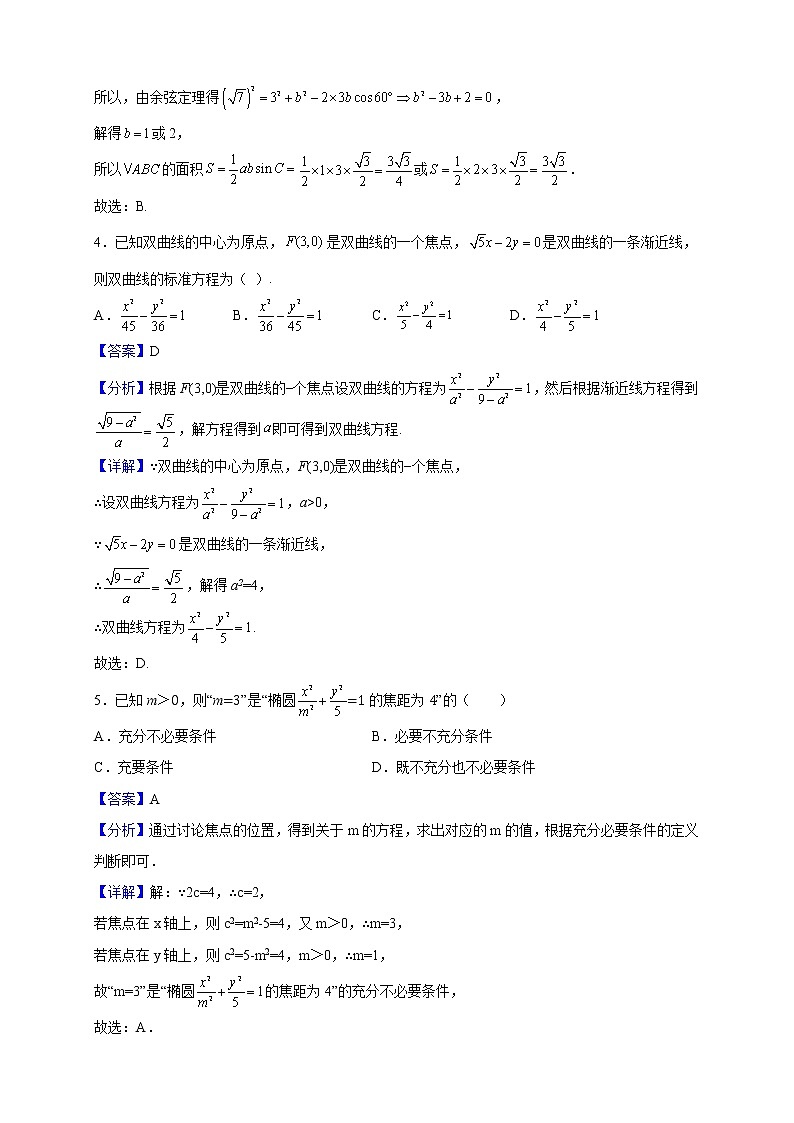 所以，由余弦定理得(√7)²=3²+b²-2×3b cos60°⇒b²-3b+2=0，
解得b=1或2，
所以VABC的面积S=1/2 ab sin C=1/2×1×3×√3/2=3√3/4或S=1/2×2×3×√3/2=3√3/2．
故选：B.
4．已知双曲线的中心为原点，F(3,0)是双曲线的一个焦点，√5x-2y=0是双曲线的一条渐近线，
则双曲线的标准方程为（ ）.
A．x²/45-y²/36=1 B．x²/36-y²/45=1 C．x²/5-y²/4=1 D．x²/4-y²/5=1
【答案】D
【分析】根据F(3,0)是双曲线的–个焦点设双曲线的方程为x²/a²-y²/(9-a²)=1，然后根据渐近线方程得到
√(9-a²)/a=√5/2，解方程得到a即可得到双曲线方程.
【详解】∵双曲线的中心为原点，F(3,0)是双曲线的–个焦点，
∴设双曲线方程为x²/a²-y²/(9-a²)=1，a>0，
∵√5x-2y=0是双曲线的一条渐近线，
∴√(9-a²)/a=√5/2，解得a²=4，
∴双曲线方程为x²/4-y²/5=1.
故选：D.
5．已知m＞0，则“m=3”是“椭圆x²/m²+y²/5=1的焦距为4”的（ ）
A．充分不必要条件 B．必要不充分条件
C．充要条件 D．既不充分也不必要条件
【答案】A
【分析】通过讨论焦点的位置，得到关于m的方程，求出对应的m的值，根据充分必要条件的定义
判断即可．
【详解】解：∵2c=4，∴c=2，
若焦点在x轴上，则c²=m²-5=4，又m＞0，∴m=3，
若焦点在y轴上，则c²=5-m²=4，m＞0，∴m=1，
故“m=3”是“椭圆x²/m²+y²/5=1的焦距为4”的充分不必要条件，
故选：A．